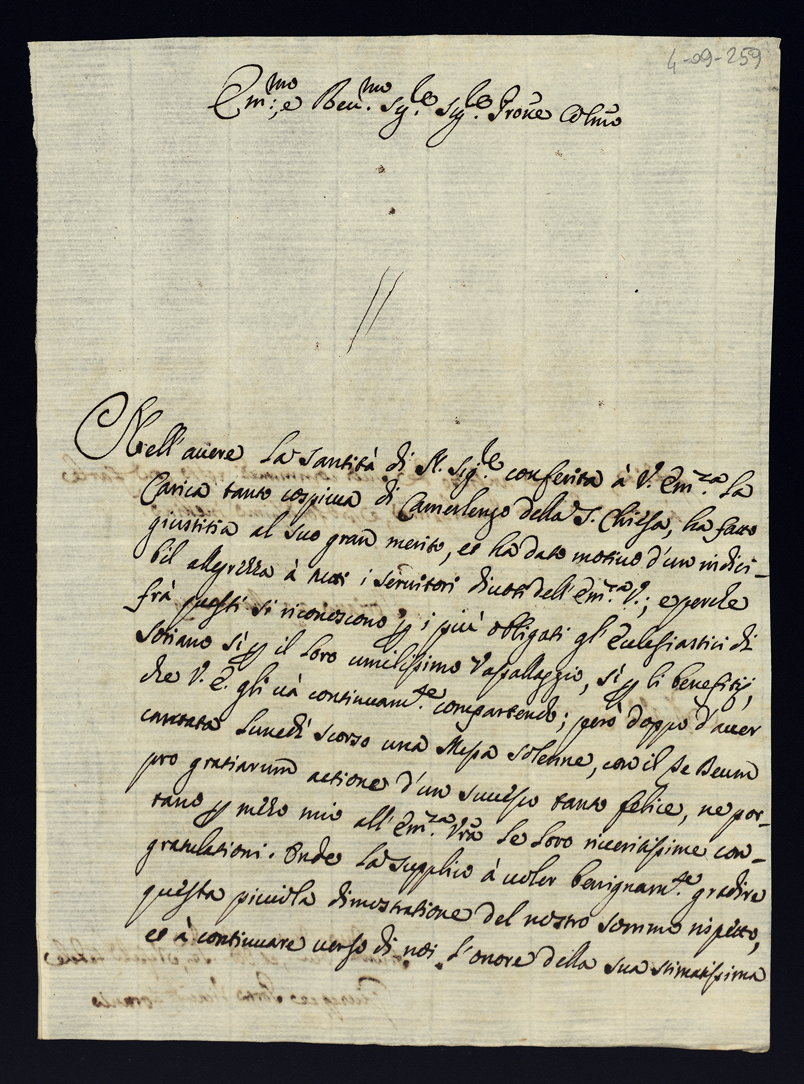 4-09-259
Em:mo e Reu.mo Sig.re Sig.re Prone Colmo
Nell'auere La Santità di N. Sig.re conferita à V. Em.za La
Carica tanto cospicua di Camerlengo della S. Chiesa, ha fatto
giustitia al suo gran merito, et ha dato motiuo d'un indici-
bil allegrezza à tutti i seruitori diuoti dell'Em.za V.; e perche
frà questi si riconoscono p i più obligati gl'Eclesiastici di
Soriano sì p il loro umilissimo Vassallaggio, sì p li benefitij,
che V. E. gli và continuam.te compartendo; però doppo d'auer
cantata Lunedì scorso una Messa solenne, con il Te Deum
pro gratiarum actione d'un successo tanto felice, ne por-
tano p mezzo mio all'Em.za Vra Le Loro riueritissime con-
gratulationi. Onde La supplico à uoler benignam.te gradire
questa picciola dimostratione del nostro sommo rispetto,
et à continuare uerso di noi L'onore della sua stimatissima